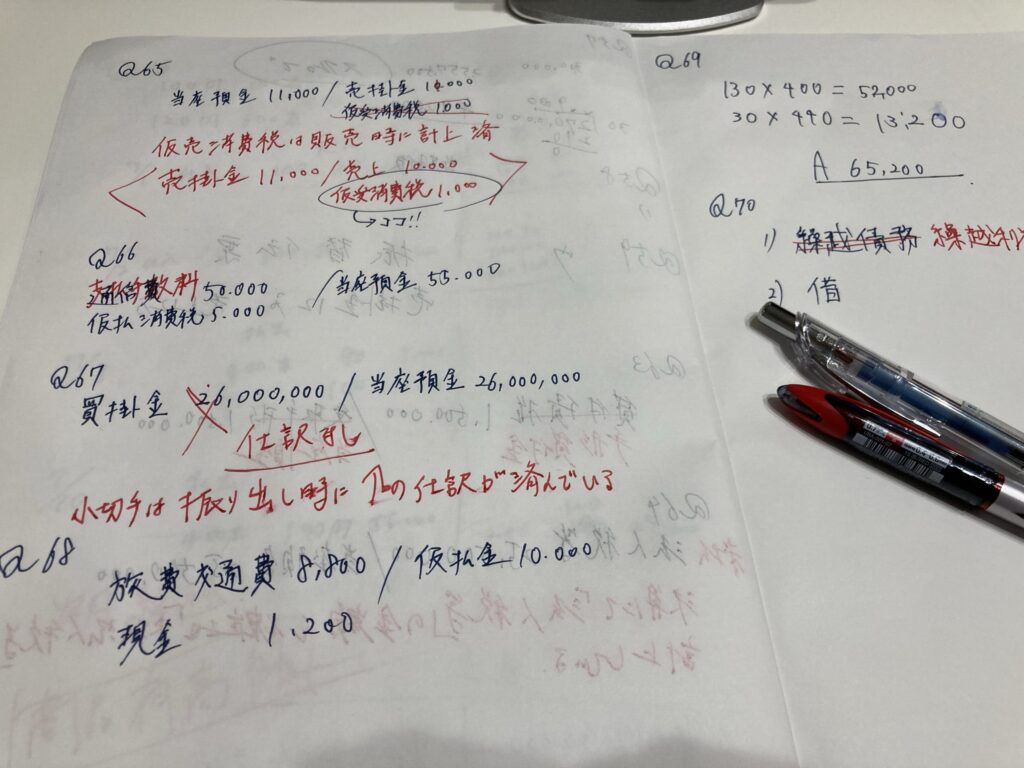 Q65
当座預金 11,000 / 売掛金 10.000
仮受消費税 1000
仮売消費税は販売時に計上済
売掛金 11,000 / 売上 10.000
仮受消費税 1,000
→ココ!!
Q66
支払手数料 50.000 / 当座預金 55.000
仮払消費税 5.000
Q67
買掛金 26,000,000 / 当座預金 26,000,000
仕訳なし
小切手は振り出し時に の仕訳が済んでいる
Q68
旅費交通費 8,800 / 仮払金 10.000
現金 1.200
Q69
130×400=52,000
30×440=13,200
A 65,200
Q70
1) 繰越債務 繰越利
2) 借